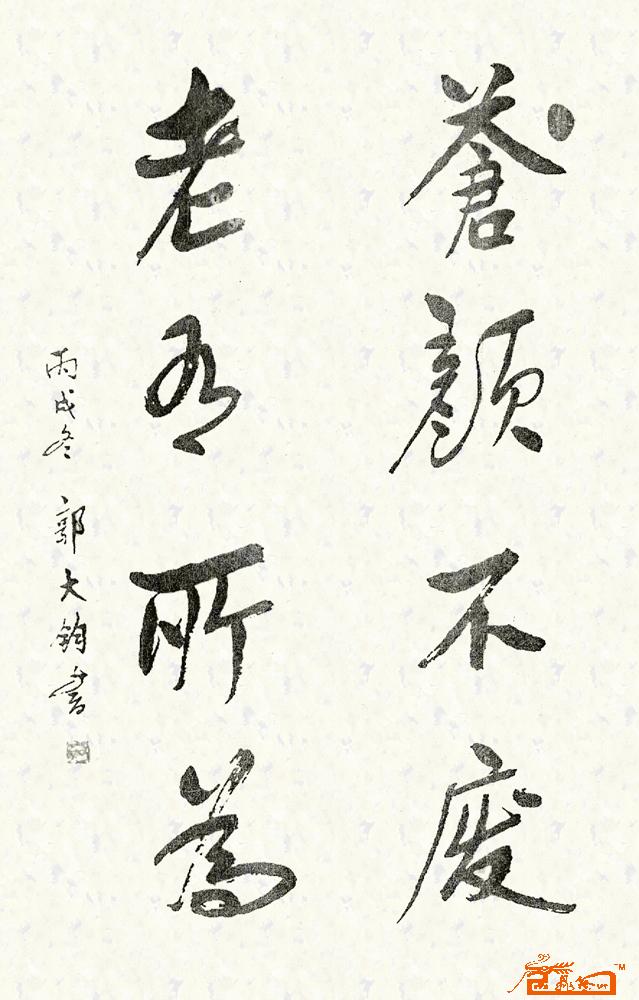 蒼顏不廢
老有所為
丙戌冬 郭大鈞書